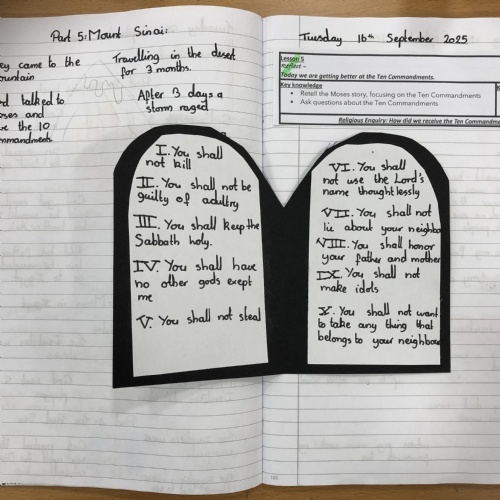 Part 5: Mount Sinai:
came to the
Travelling in the desert
for 3 months.
talked to
and
the 10
After 3 days a
storm raged
Tuesday 16th September 2025
Lesson 5
Reflect -
Today we are getting better at the Ten Commandments.
Key knowledge
Retell the Moses story, focusing on the Ten Commandments
Ask questions about the Ten Commandments
Religious Enquiry: How did we receive the Ten
I. You shall
not kill
II. You shall not be
guilty of adultry
III. You shall keep the
Sabbath holy.
IV. You shall have
no other gods exept
me
V. You shall not steal
VI. You shall
not use the Lord's
name thoughtlessly
VII. You shall not
lie about your
VIII. You shall honor
your father and mother
IX. You shall not
make idols
X. You shall not want
to take any thing that
belongs to your neighbour